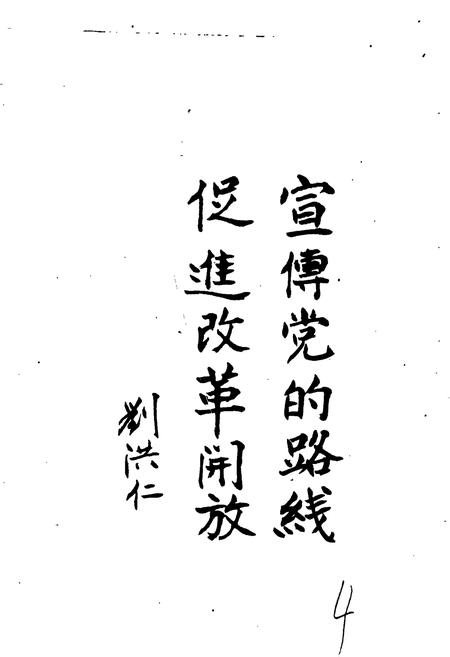 宣傳党的路线
促進改革開放
劉洪仁
4